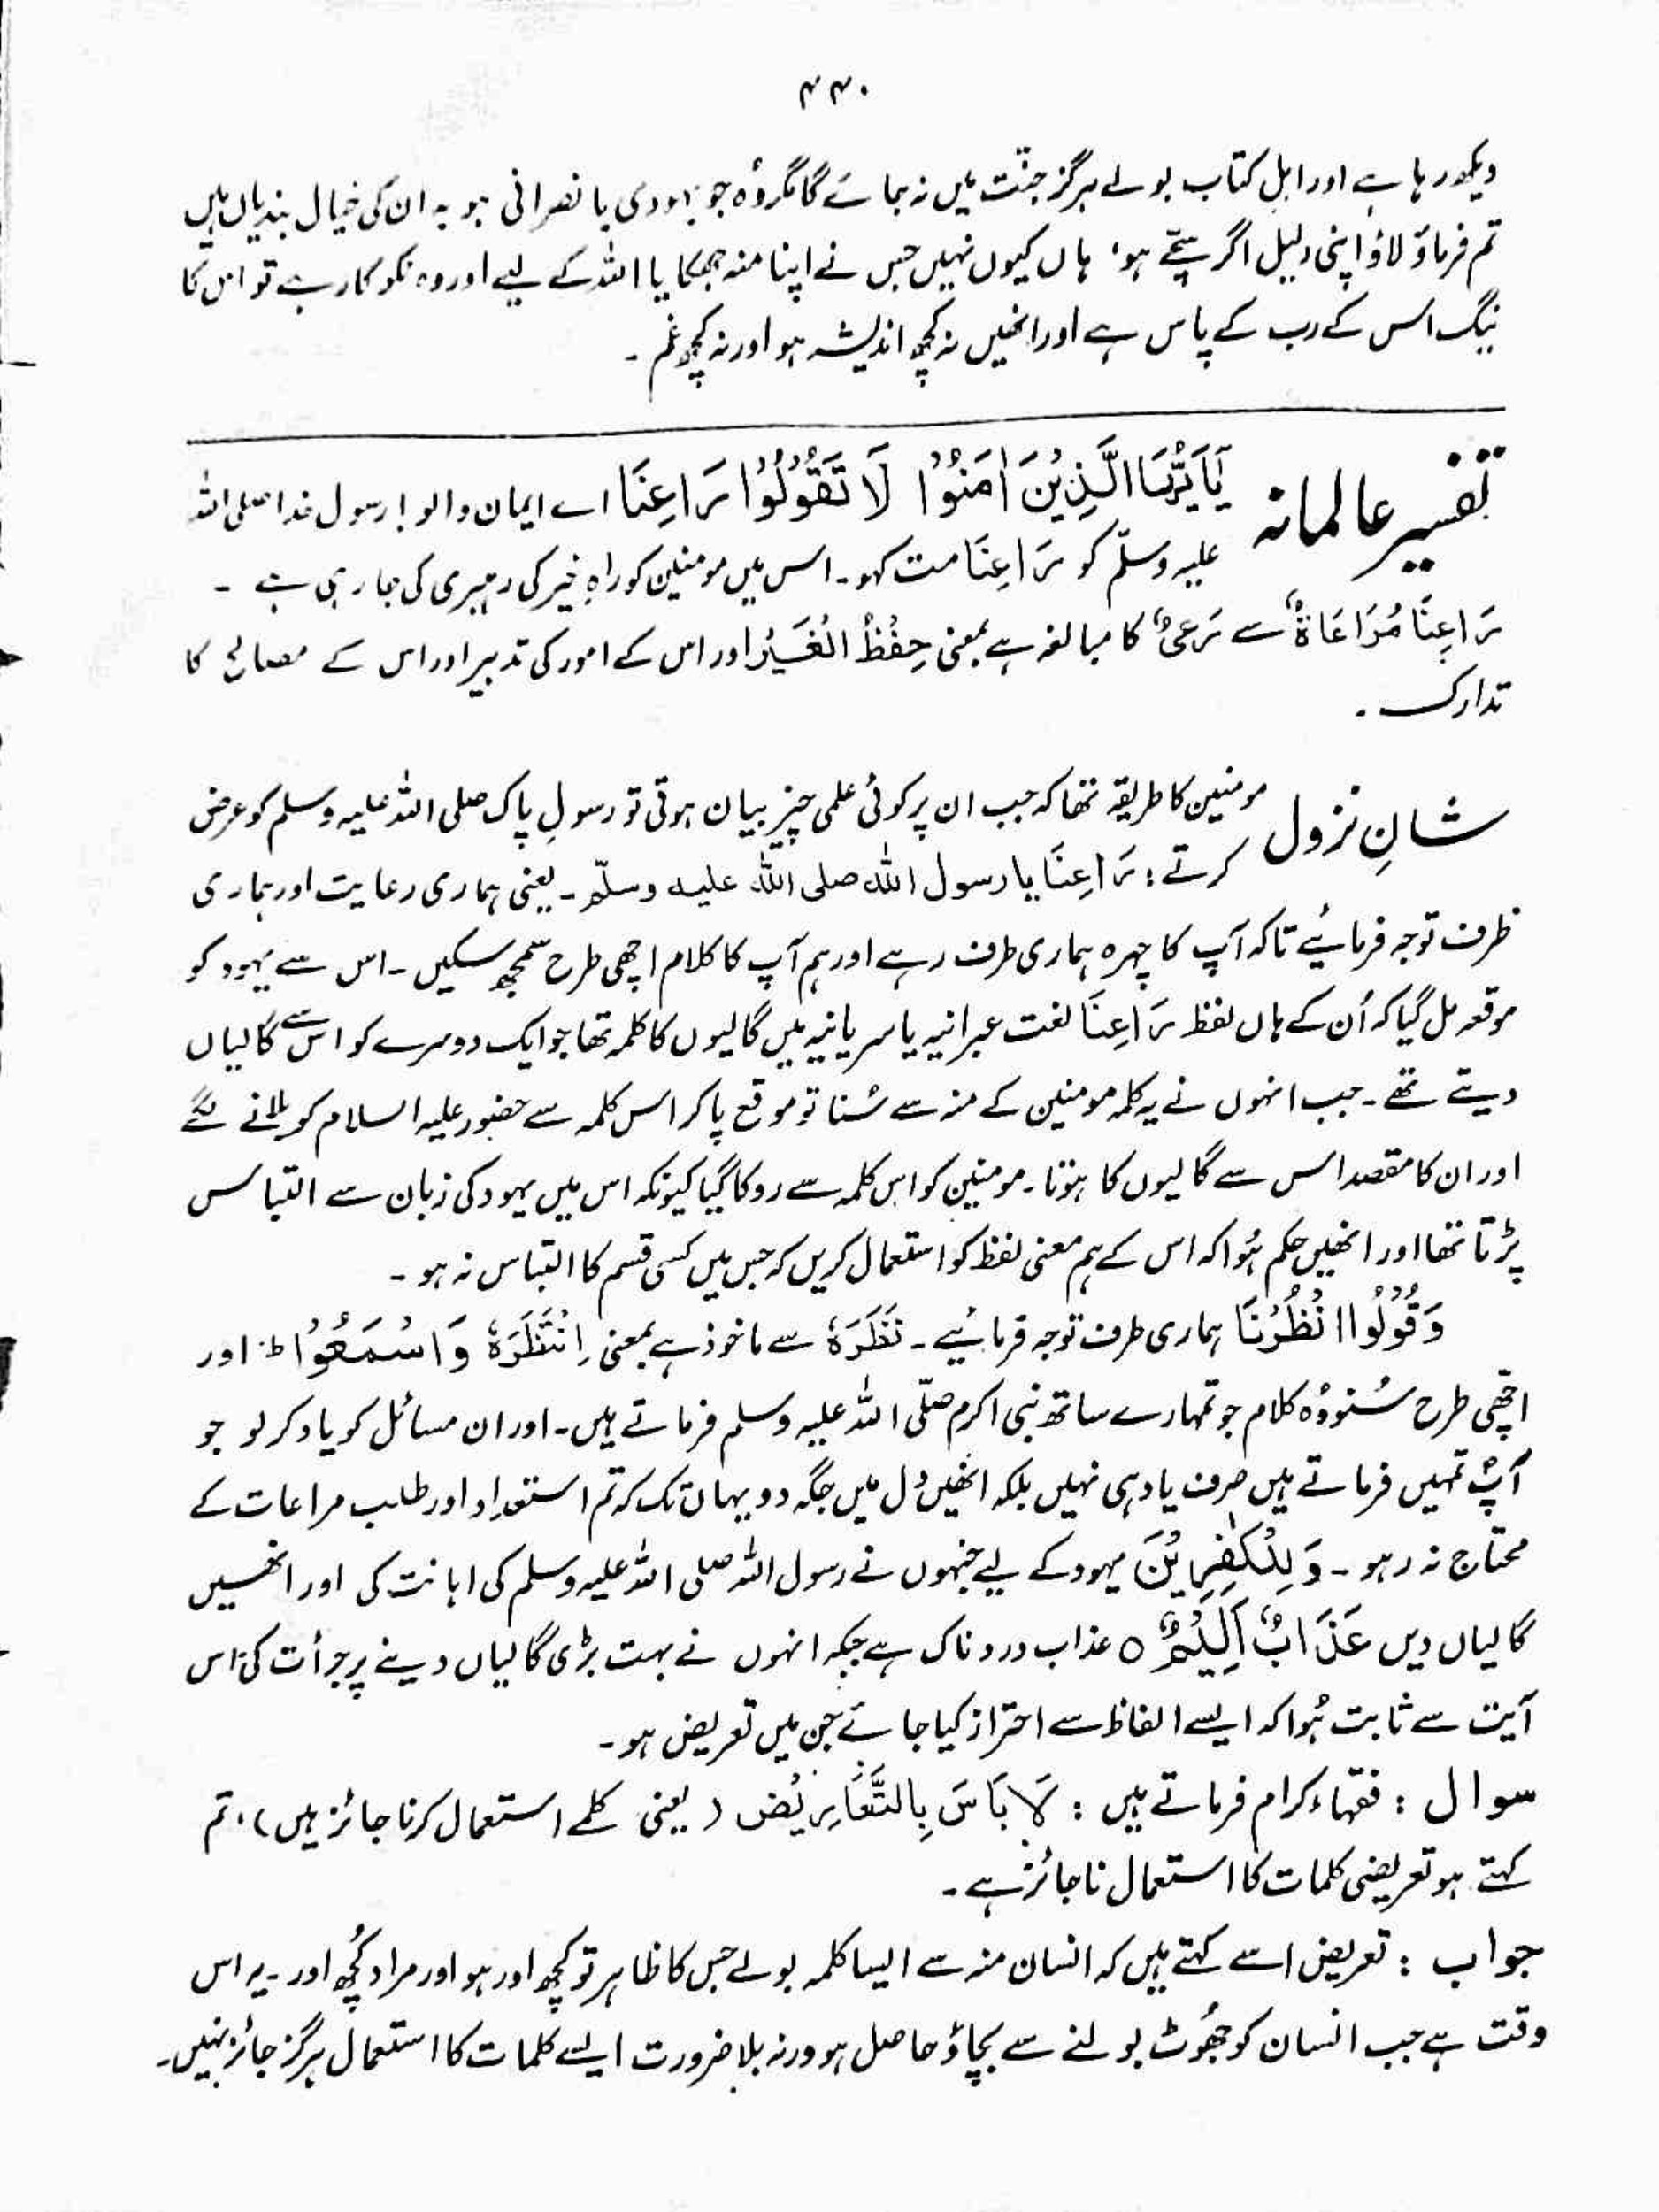 ۴۴۰
دیکھ رہا ہے اور اہل کتاب بولے ہرگز جنّت میں نہ جائے گا مگر وُہ جو یہودی یا نصرانی ہو یہ ان کی خیال بندیاں ہیں
تم فرماؤ لاؤ اپنی دلیل اگر سچّے ہو، ہاں کیوں نہیں جس نے اپنا منہ جھکایا اللہ کے لیے اور وہ نکو کار ہے تو اس کا
نیگ اس کے رب کے پاس ہے اور انھیں نہ کچھ اندیشہ ہو اور نہ کچھ غم ۔
تفسیر عالمانہ یٰٓاَیُّہَا الَّذِیْنَ اٰمَنُوْا لَا تَقُوْلُوْا رَاعِنَا اے ایمان والو! رسول خدا صلی اللہ
علیہ وسلّم کو رَاعِنَا مت کہو ۔ اس میں مومنین کو راہِ خیر کی رہبری کی جا رہی ہے ۔
رَاعِنَا مُرَاعَاۃٌ سے رَعیٌ کا مبالغہ ہے بمعنی حِفْظُ الْغَیْرِ اور اس کے امور کی تدبیر اور اس کے مصالح کا
تدارک ۔
شانِ نزول مومنین کا طریقہ تھا کہ جب ان پر کوئی علمی چیز بیان ہوتی تو رسولِ پاک صلی اللہ علیہ وسلم کو عرض
کرتے : رَاعِنَا یا رسول اللہ صلی اللہ علیہ وسلّم ۔ یعنی ہماری رعایت اور ہماری
طرف توجہ فرمائیے تاکہ آپ کا چہرہ ہماری طرف رہے اور ہم آپ کا کلام اچھی طرح سمجھ سکیں ۔ اس سے یہود کو
موقعہ مل گیا کہ اُن کے ہاں لفظ رَاعِنَا لغت عبرانیہ یا سریانیہ میں گالیوں کا کلمہ تھا جو ایک دوسرے کو اس سے گالیاں
دیتے تھے ۔ جب انہوں نے یہ کلمہ مومنین کے منہ سے سُنا تو موقع پا کر اس کلمہ سے حضور علیہ السلام کو بلانے لگے
اور ان کا مقصد اس سے گالیوں کا ہوتا ۔ مومنین کو اس کلمہ سے روکا گیا کیونکہ اس میں یہود کی زبان سے التباس
پڑتا تھا اور انھیں حکم ہُوا کہ اس کے ہم معنی لفظ کو استعمال کریں کہ جس میں کسی قسم کا التباس نہ ہو ۔
وَقُوْلُوا انْظُرْنَا ہماری طرف توجہ فرمائیے ۔ نَظَرَہٗ سے ماخوذ ہے بمعنی اِنْتَظَرَہٗ وَاسْمَعُوْا ط اور
اچھّی طرح سُنو وُہ کلام جو تمہارے ساتھ نبی اکرم صلّی اللہ علیہ وسلم فرماتے ہیں ۔ اور ان مسائل کو یاد کر لو جو
آپ تمہیں فرماتے ہیں صرف یاد ہی نہیں بلکہ انھیں دل میں جگہ دو یہاں تک کہ تم استعداد اور طلب مراعات کے
محتاج نہ رہو ۔ وَلِلْکٰفِرِیْنَ یہود کے لیے جنہوں نے رسول اللہ صلی اللہ علیہ وسلم کی اہانت کی اور انھیں
گالیاں دیں عَذَابٌ اَلِیْمٌ ○ عذاب دردناک ہے جبکہ انہوں نے بہت بڑی گالیاں دینے پر جرأت کی ، اس
آیت سے ثابت ہُوا کہ ایسے الفاظ سے احتراز کیا جائے جن میں تعریض ہو ۔
سوال : فقہاء کرام فرماتے ہیں : لَا بَاْسَ بِالتَّعَارِیْضِ ( یعنی کلمے استعمال کرنا جائز ہیں ) ، تم
کہتے ہو تعریضی کلمات کا استعمال ناجائز ہے ۔
جواب : تعریض اسے کہتے ہیں کہ انسان منہ سے ایسا کلمہ بولے جس کا ظاہر تو کچھ اور ہو اور مراد کُچھ اور ۔ یہ اس
وقت ہے جب انسان کو جھُوٹ بولنے سے بچاؤ حاصل ہو ورنہ بلا ضرورت ایسے کلمات کا استعمال ہرگز جائز نہیں ۔